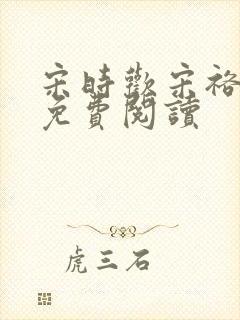 宋時歡宋裕
免費閱讀
虎三石